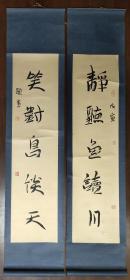 靜聽魚讀月
笑對鳥談天